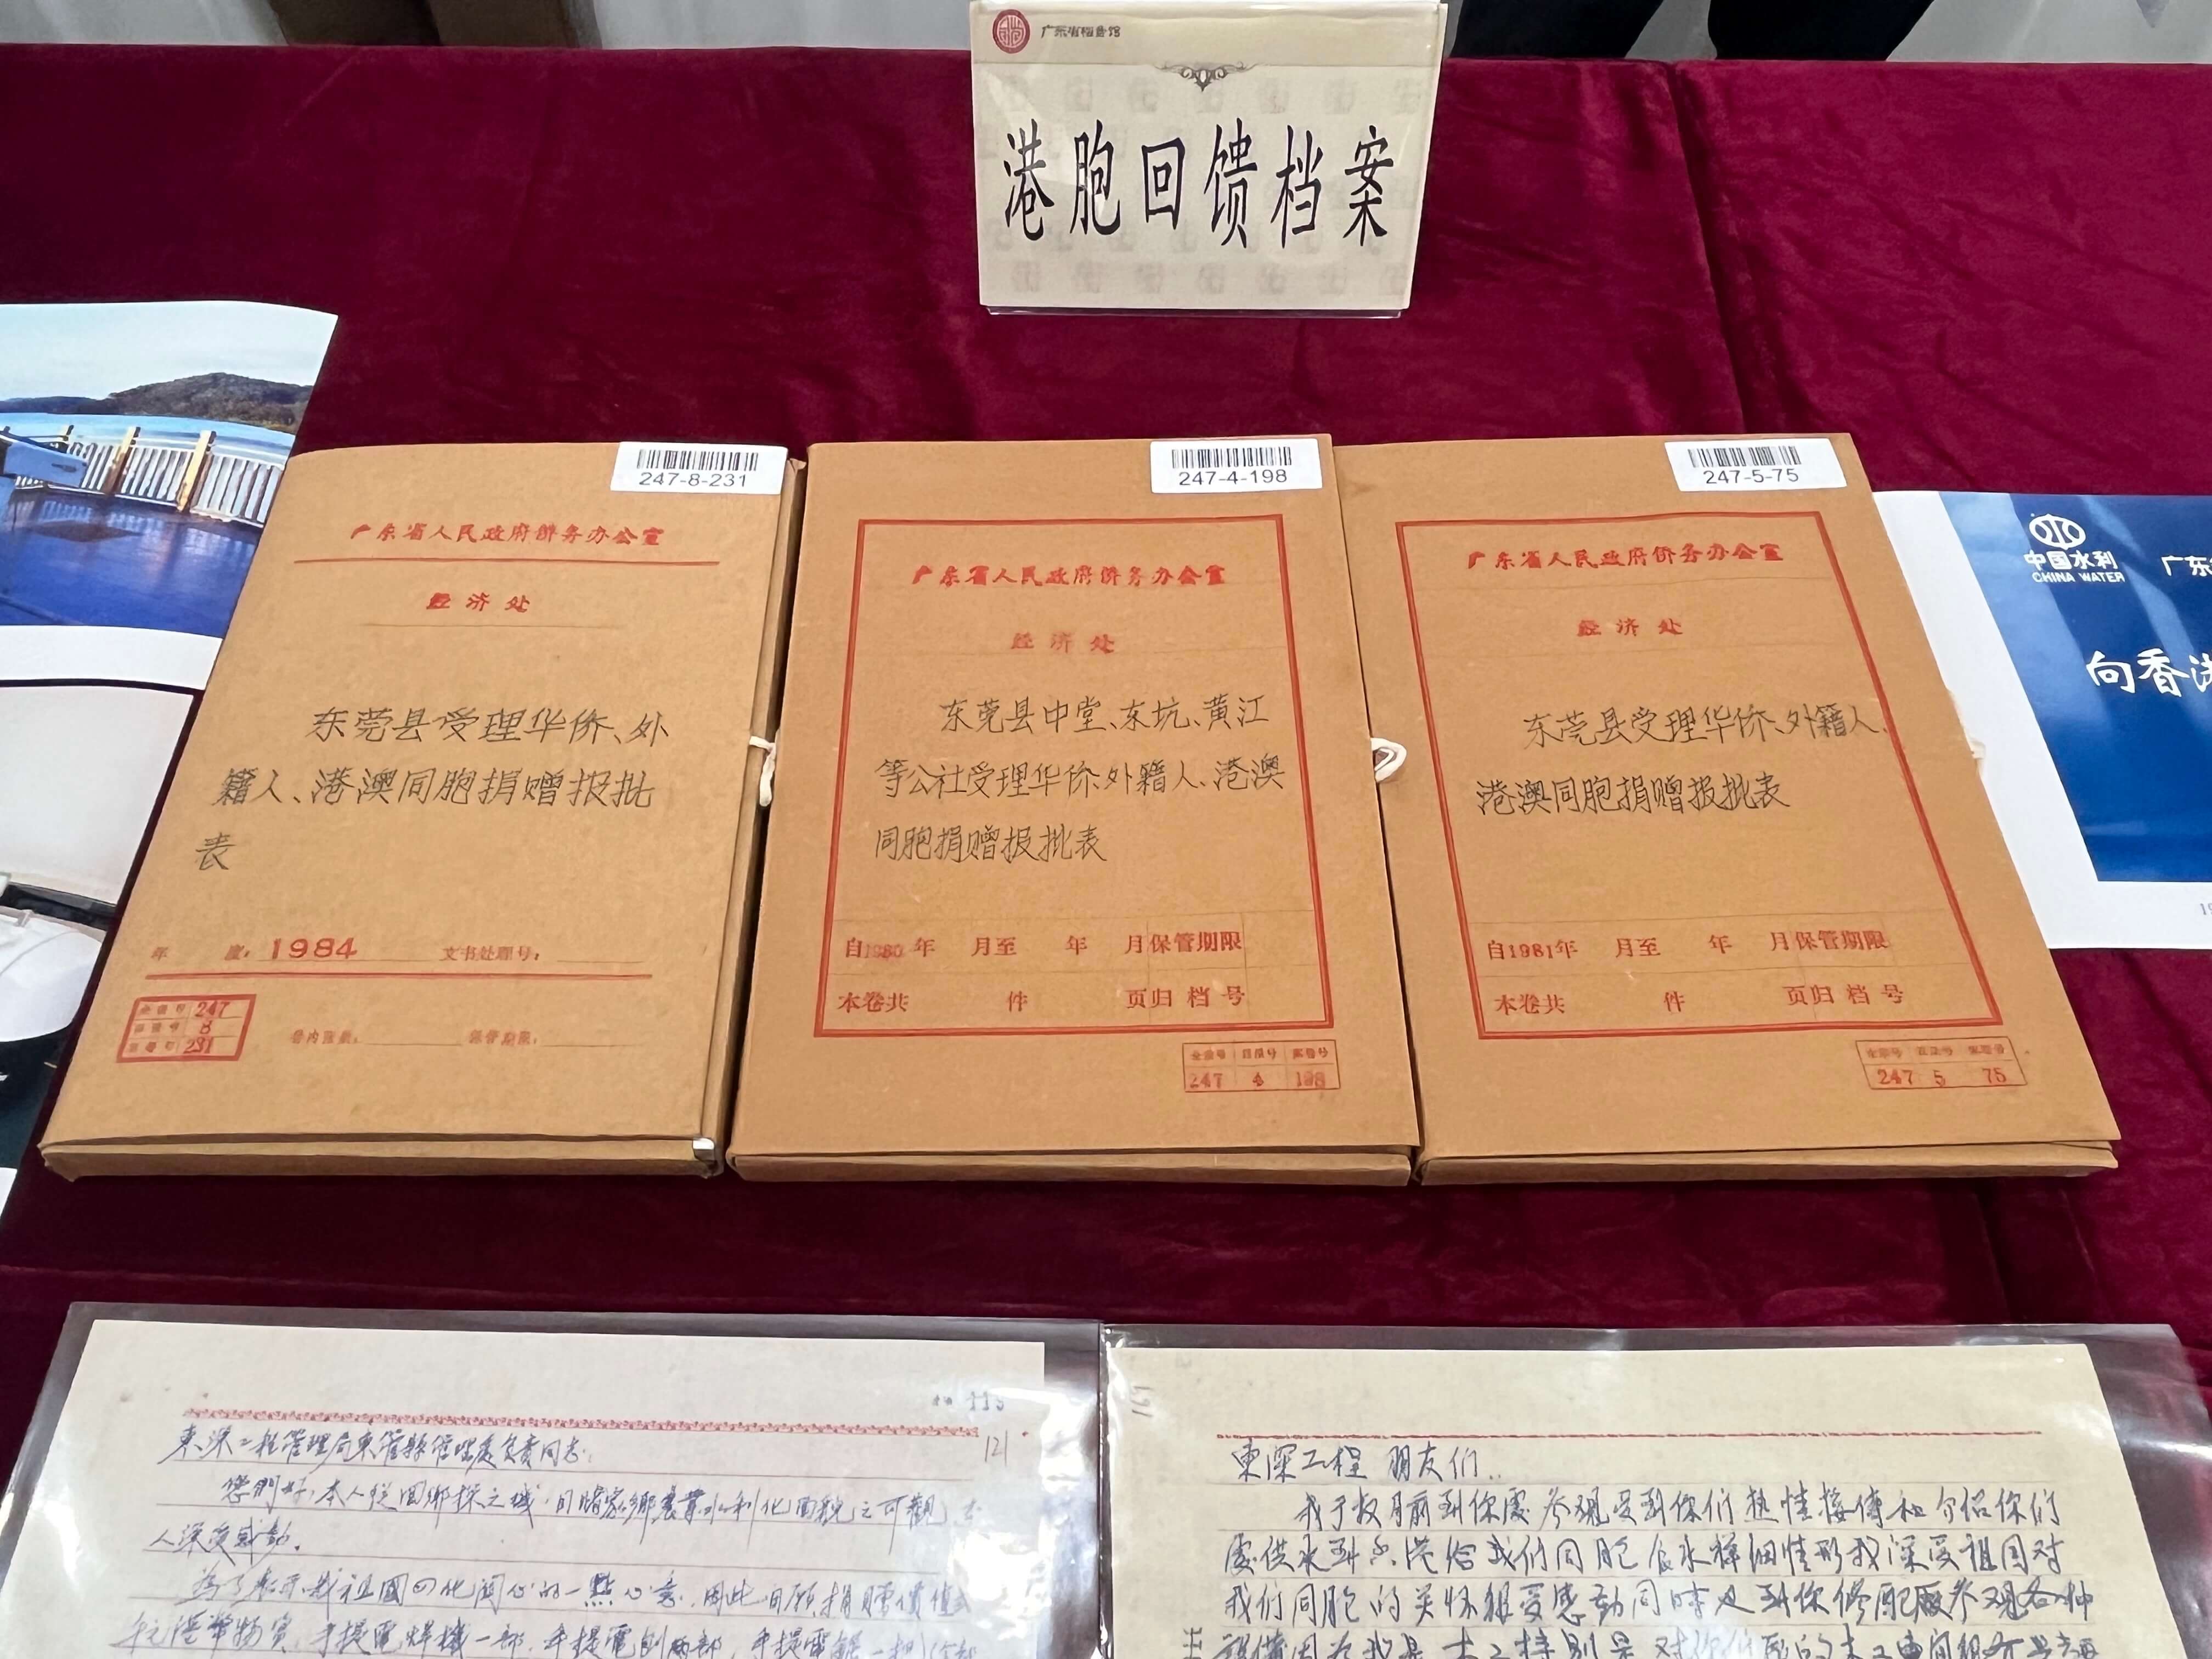 广东省档案馆
港胞回馈档案
247-8-231
广东省人民政府侨务办公室
经济处
东莞县受理华侨、外
籍人、港澳同胞捐赠报批
表
年 度: 1984 文书处理号:
全宗号 247
目录号 8
案卷号 231
卷内张数: 保管期限:
247-4-198
广东省人民政府侨务办公室
经济处
东莞县中堂、东坑、黄江
等公社受理华侨、外籍人、港澳
同胞捐赠报批表
自1980年 月至 年 月保管期限
本卷共 件 页归档号
全宗号 目录号 案卷号
247 4 198
247-5-75
广东省人民政府侨务办公室
经济处
东莞县受理华侨、外籍人、
港澳同胞捐赠报批表
自1981年 月至 年 月保管期限
本卷共 件 页归档号
全宗号 目录号 案卷号
247 5 75
中国水利
CHINA WATER
广东
向香港
121
東深工程管理局東管縣管理處負責同志:
您們好,本人從回鄉探之城,目睹家鄉農業水利化面貌之可觀,本
人深受感動。
為了表示對祖國四化関心的一點心意,因此自願捐贈價值
元港幣物資,手提電焊機一部,手提電刨兩部,手提電鋸一
161
東深工程 朋友们:
我于数月前到你處参观受到你们热情接待和介绍你们
處供水到香港给我们同胞食水详细情形我深受祖国对
我们同胞的关怀很受感動同時又到你修配厰参观各种
設備因为我是木工特别是对你们